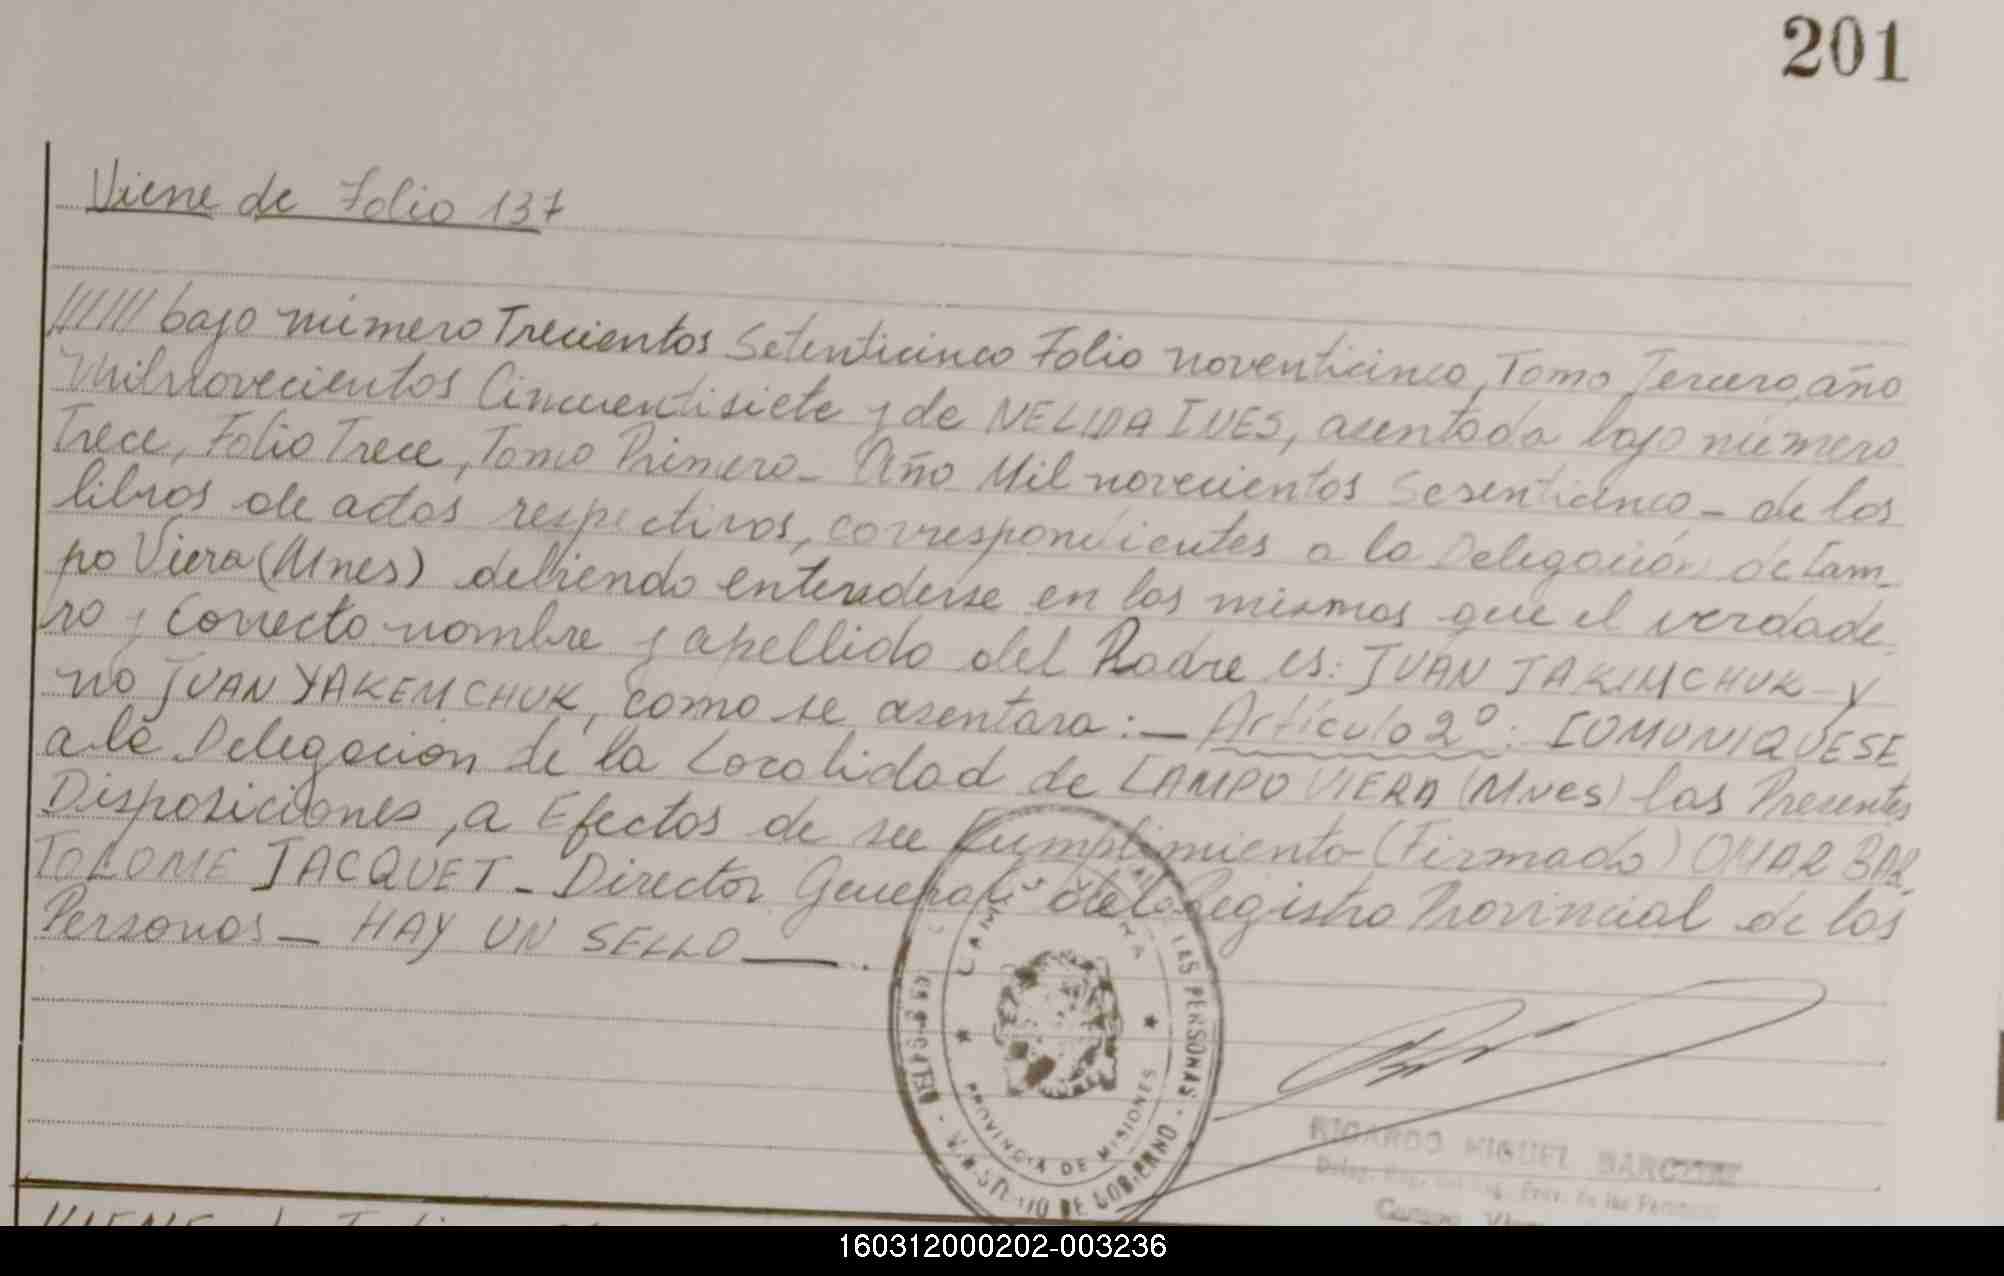 201
Viene de Folio 137
////// bajo número Trecientos Setenticinco Folio noventicinco, Tomo Tercero, año
Milnovecientos Cincuentisiete y de NELIDA INES, asentada bajo número
Trece, Folio Trece, Tomo Primero - Año Mil novecientos Sesenticinco - de los
libros de actas respectivos, correspondientes a la Delegación de Cam-
po Viera (Mnes) debiendo entenderse en los mismos que el verdade-
ro y correcto nombre y apellido del Padre es: JUAN JAKIMCHUK - Y
no JUAN YAKEMCHUK, como se asentara: - Artículo 2º: COMUNIQUESE
a la Delegación de la Localidad de CAMPO VIERA (Mnes) las Presentes
Disposiciones, a Efectos de su Cumplimiento - (Firmado) OMAR BAR-
TOLOME JACQUET - Director General del Registro Provincial de las
Personas - HAY UN SELLO -.
LAS PERSONAS - MINISTERIO DE GOBIERNO
PROVINCIA DE MISIONES
RICARDO MIGUEL
160312000202-003236